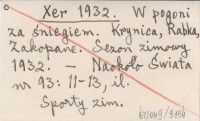 Xer 1932. W pogoni
za śniegiem. Krynica, Rabka,
Zakopane. Sezon zimowy
1932. – Naokoło Świata
nr 93: 11-13, il.
Sporty zim.